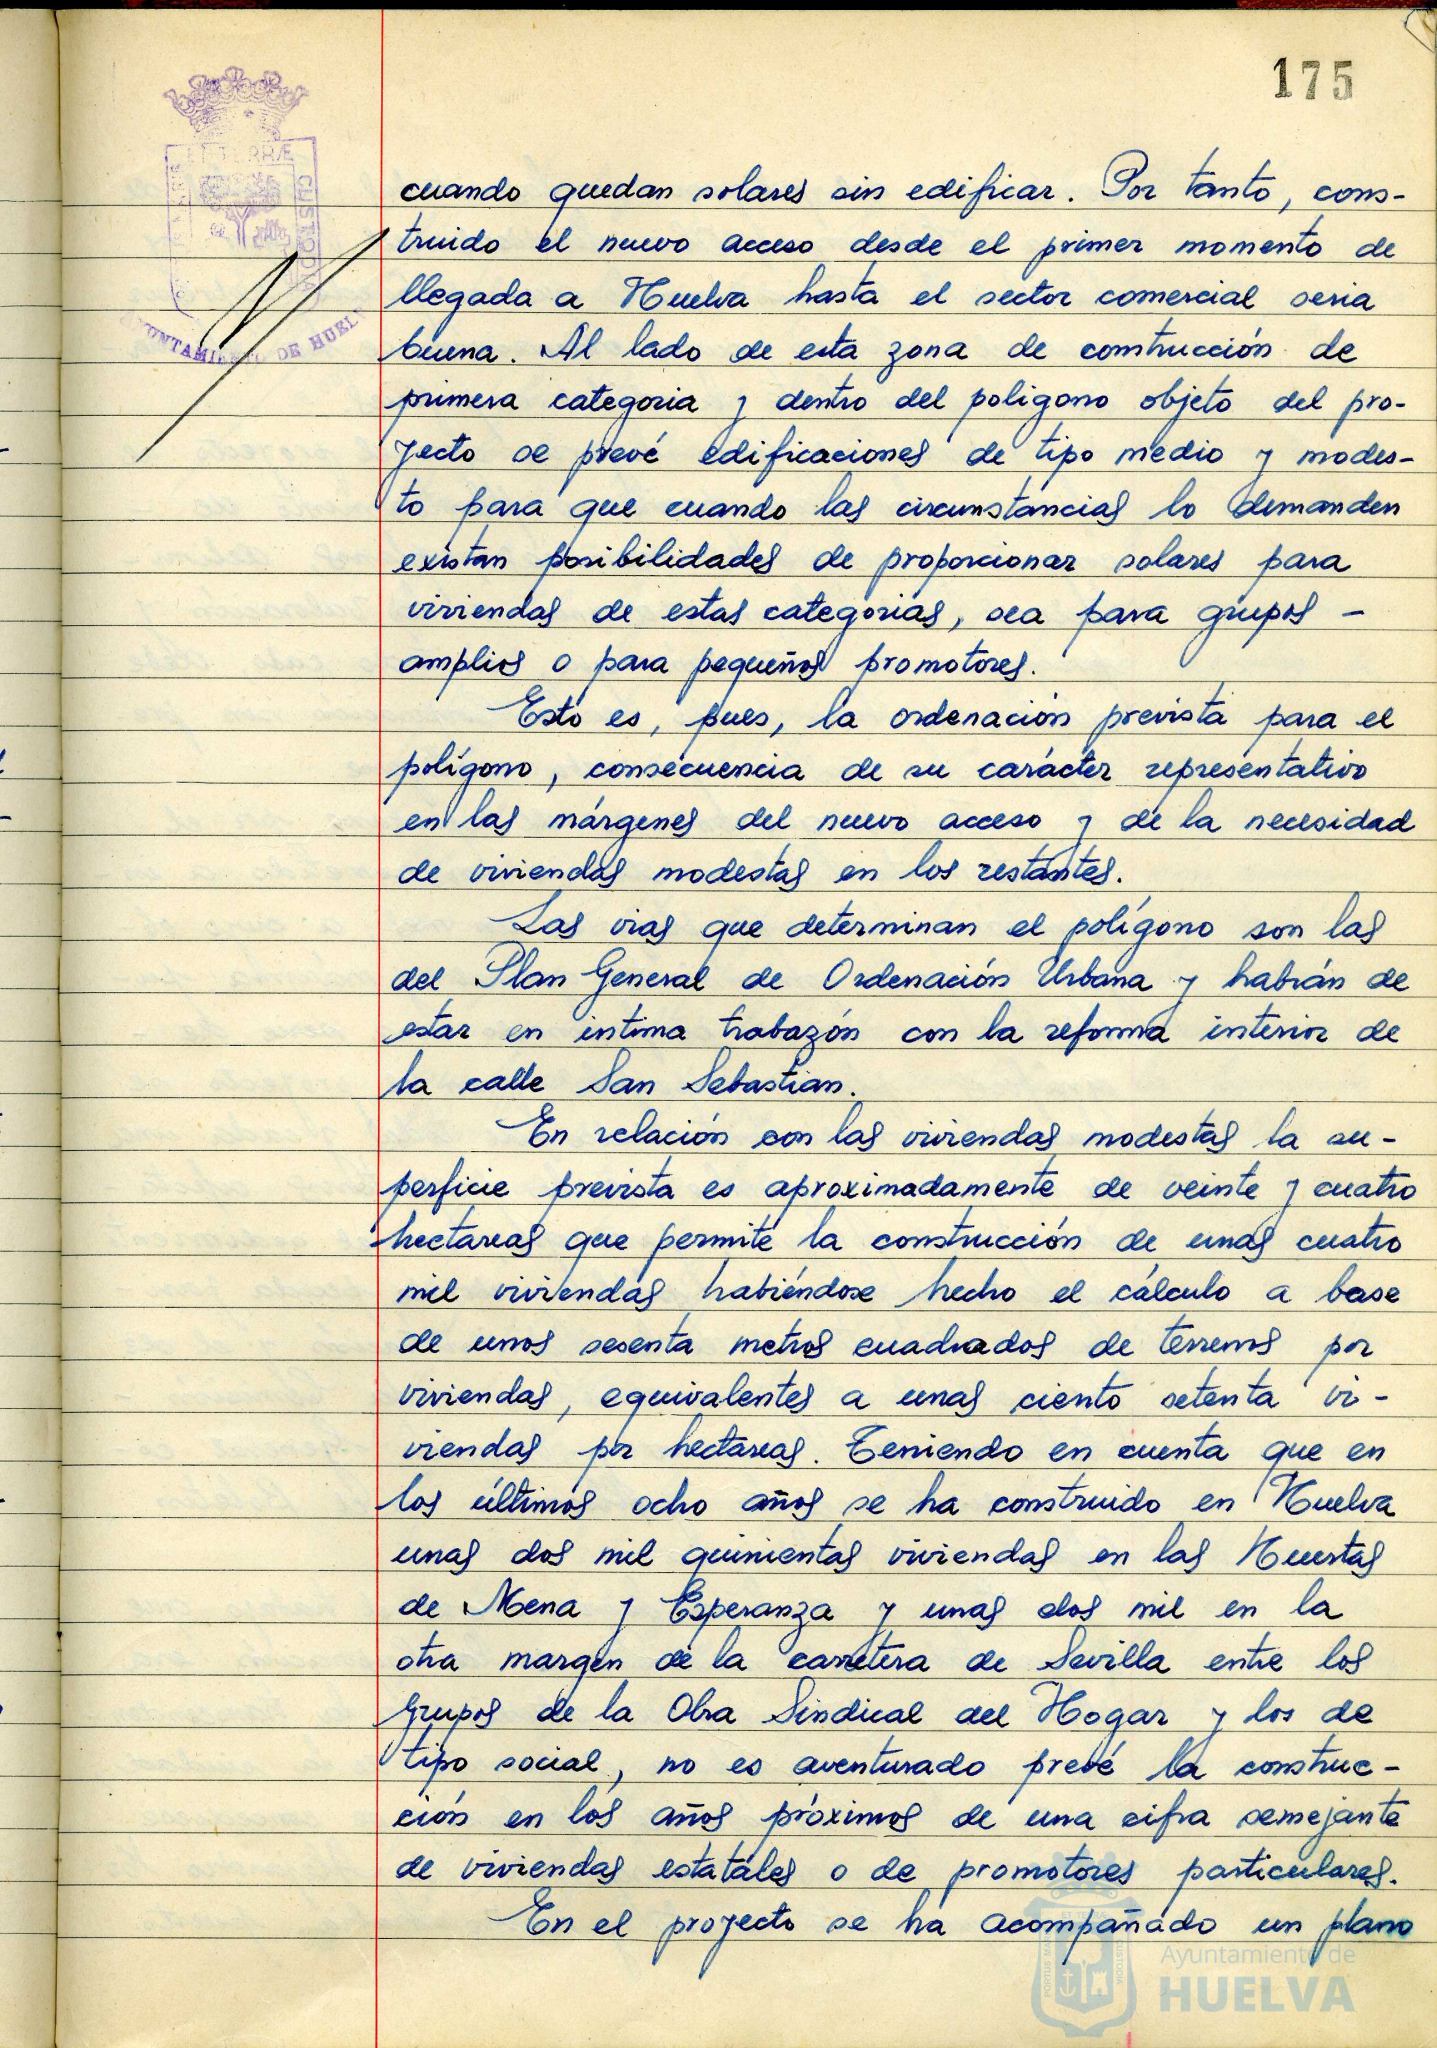 175
ET TERRÆ
CUSTODIA
AYUNTAMIENTO DE HUELVA
cuando quedan solares sin edificar. Por tanto, cons-
truido el nuevo acceso desde el primer momento de
llegada a Huelva hasta el sector comercial seria
buena. Al lado de esta zona de construcción de
primera categoria y dentro del poligono objeto del pro-
yecto se prevé edificaciones de tipo medio y modes-
to para que cuando las circunstancias lo demanden
existan posibilidades de proporcionar solares para
viviendas de estas categorias, sea para grupos -
amplios o para pequeños promotores.
Esto es, pues, la ordenación prevista para el
polígono, consecuencia de su carácter representativo
en las márgenes del nuevo acceso y de la necesidad
de viviendas modestas en los restantes.
Las vias que determinan el polígono son las
del Plan General de Ordenación Urbana y habrán de
estar en intima trabazón con la reforma interior de
la calle San Sebastian.
En relación con las viviendas modestas la su-
perficie prevista es aproximadamente de veinte y cuatro
hectareas que permite la construcción de unas cuatro
mil viviendas habiéndose hecho el cálculo a base
de unos sesenta metros cuadrados de terrenos por
viviendas, equivalentes a unas ciento setenta vi-
viendas por hectareas. Teniendo en cuenta que en
los últimos ocho años se ha construido en Huelva
unas dos mil quinientas viviendas en las Huertas
de Mena y Esperanza y unas dos mil en la
otra margen de la carretera de Sevilla entre los
grupos de la Obra Sindical del Hogar y los de
tipo social, no es aventurado prevé la construc-
ción en los años próximos de una cifra semejante
de viviendas estatales o de promotores particulares.
En el proyecto se ha acompañado un plano
Ayuntamiento de
HUELVA